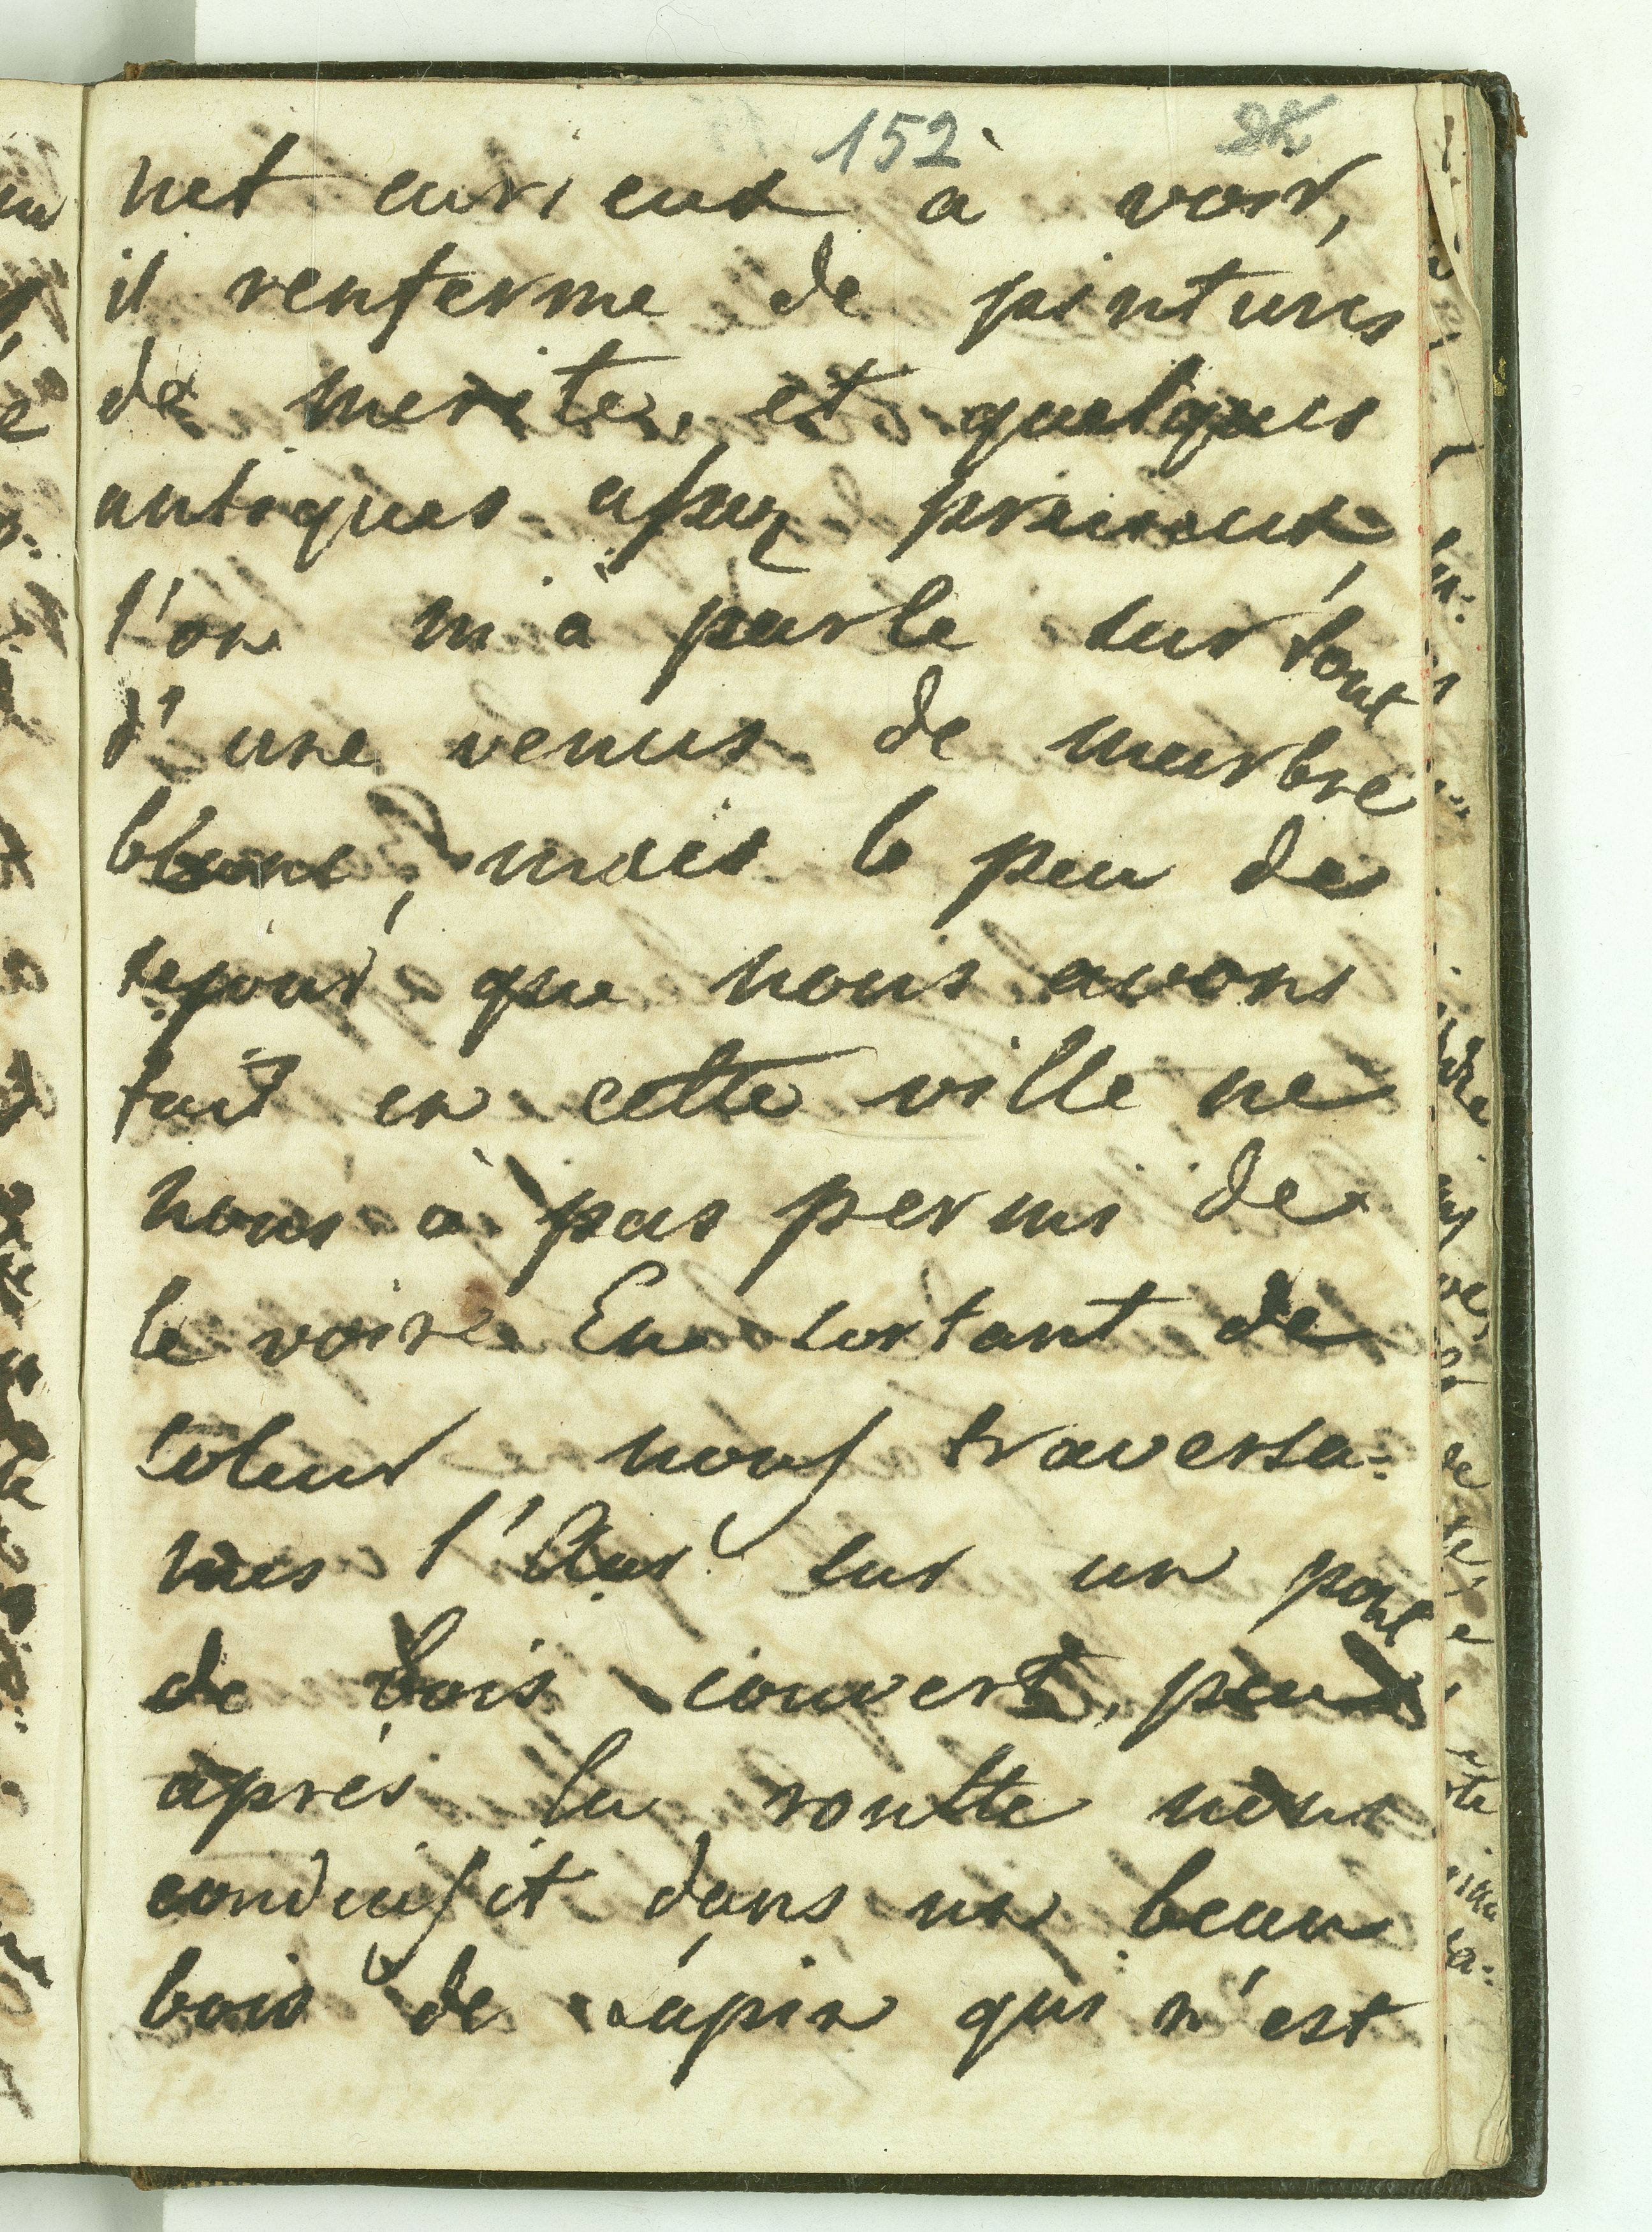 152
net curieux a voir,
il renferme de pintures
de merite, et quelques
antiques assez precieux,
l'on m'à parle sur tout
d'une venus de marbre
blanc, mais le peu de
sejour que nous avons
fait en cette ville ne
nous à pas permis de
le voire. En sortant de
soleur nous traversa=
mes l'Aar sur un pont
de bois couvert, peu
après la routte nous
conduisit dans un beau
bois de sapin qui n'est